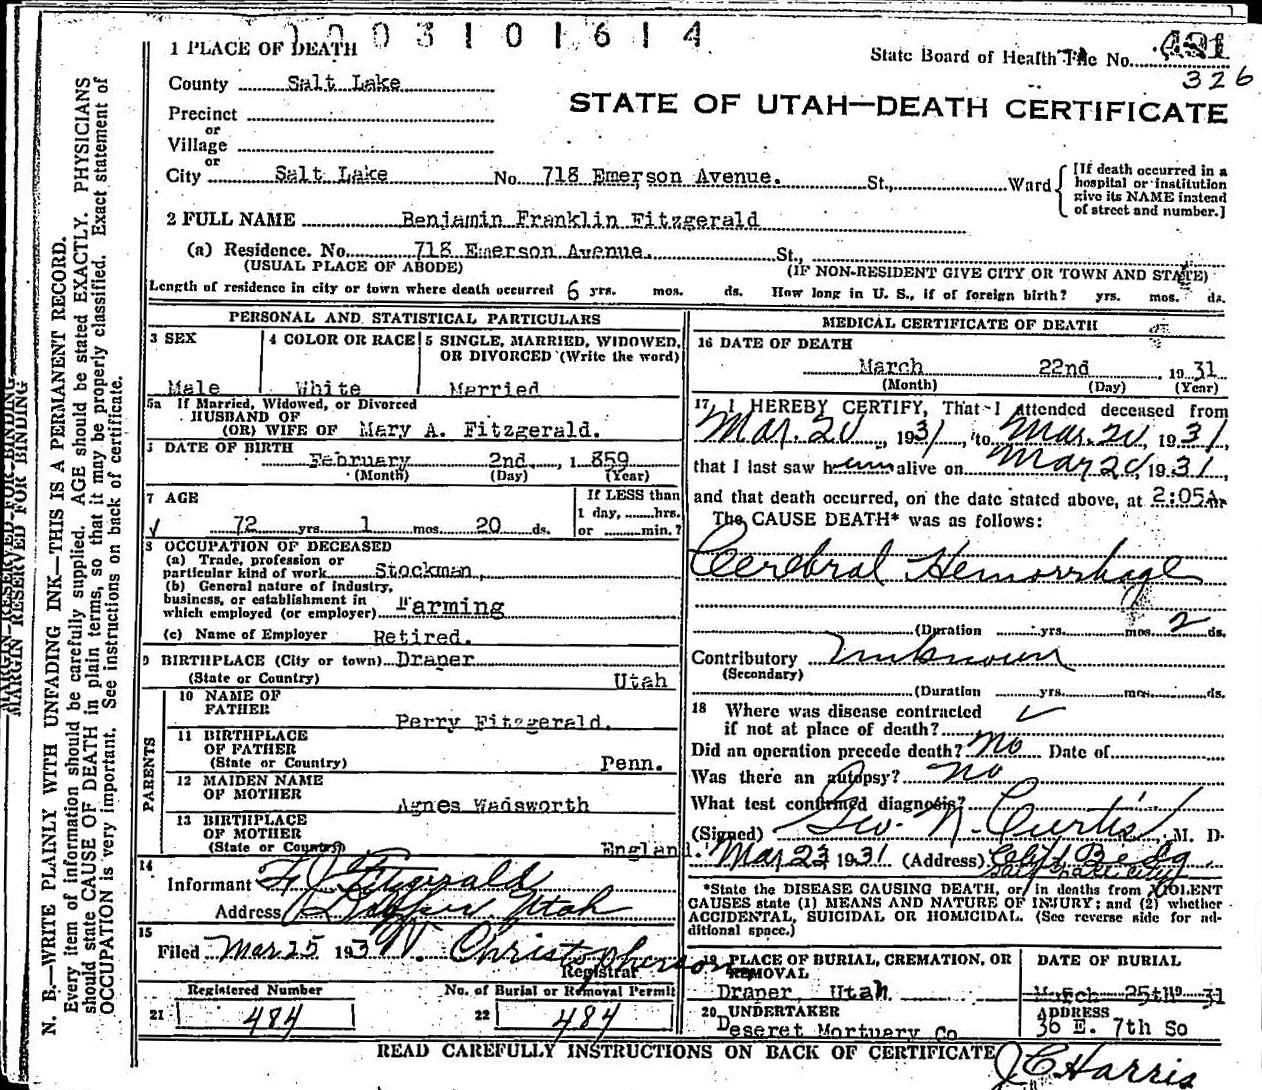 1003101614
1 PLACE OF DEATH
State Board of Health File No. 491
326
County Salt Lake
STATE OF UTAH—DEATH CERTIFICATE
Precinct
or
Village
or
City Salt Lake No. 718 Emerson Avenue. St., Ward
[If death occurred in a hospital or institution give its NAME instead of street and number.]
2 FULL NAME Benjamin Franklin Fitzgerald
(a) Residence. No. 718 Emerson Avenue. St.,
(USUAL PLACE OF ABODE) (IF NON-RESIDENT GIVE CITY OR TOWN AND STATE)
Length of residence in city or town where death occurred 6 yrs. mos. ds. How long in U. S., if of foreign birth? yrs. mos. ds.
PERSONAL AND STATISTICAL PARTICULARS
3 SEX 4 COLOR OR RACE 5 SINGLE, MARRIED, WIDOWED,
OR DIVORCED (Write the word)
Male White Married
5a If Married, Widowed, or Divorced
HUSBAND OF
(OR) WIFE OF Mary A. Fitzgerald.
DATE OF BIRTH
February 2nd, 1859
(Month) (Day) (Year)
7 AGE If LESS than
1 day, hrs.
72 yrs. 1 mos. 20 ds. or min.?
8 OCCUPATION OF DECEASED
(a) Trade, profession or
particular kind of work Stockman,
(b) General nature of Industry,
business, or establishment in
which employed (or employer) Farming
(c) Name of Employer Retired.
9 BIRTHPLACE (City or town) Draper
(State or Country) Utah
PARENTS
10 NAME OF
FATHER Perry Fitzgerald.
11 BIRTHPLACE
OF FATHER
(State or Country) Penn.
12 MAIDEN NAME
OF MOTHER Agnes Wadsworth
13 BIRTHPLACE
OF MOTHER
(State or Country) England.
14
Informant F J Fitzgerald
Address Draper Utah
15
Filed Mar 25 193 W. Christopherson
Registrar
Registered Number No. of Burial or Removal Permit
21 484 22 484
MEDICAL CERTIFICATE OF DEATH
16 DATE OF DEATH
March 22nd 1931
(Month) (Day) (Year)
17 I HEREBY CERTIFY, That I attended deceased from
Mar. 20, 1931, to Mar. 20, 1931,
that I last saw him alive on Mar 20, 1931,
and that death occurred, on the date stated above, at 2:05A.
The CAUSE DEATH* was as follows:
Cerebral Hemorrhage
(Duration yrs. mos. 2 ds.
Contributory Unknown
(Secondary)
(Duration yrs. mos. ds.
18 Where was disease contracted
if not at place of death?
Did an operation precede death? No Date of
Was there an autopsy? No
What test confirmed diagnosis?
(Signed) Geo. N. Curtis, M. D.
Mar 23 1931 (Address) Clift Bldg
Salt Lake City
*State the DISEASE CAUSING DEATH, or in deaths from VIOLENT
CAUSES state (1) MEANS AND NATURE OF INJURY; and (2) whether
ACCIDENTAL, SUICIDAL OR HOMICIDAL. (See reverse side for additional space.)
19 PLACE OF BURIAL, CREMATION, OR
REMOVAL
Draper Utah
DATE OF BURIAL
March 25th 31
20 UNDERTAKER
Deseret Mortuary Co
ADDRESS
36 E. 7th So
READ CAREFULLY INSTRUCTIONS ON BACK OF CERTIFICATE
J C Harris
MARGIN RESERVED FOR BINDING
MARGIN RESERVED FOR BINDING
N. B.—WRITE PLAINLY WITH UNFADING INK—THIS IS A PERMANENT RECORD.
Every item of information should be carefully supplied. AGE should be stated EXACTLY. PHYSICIANS
should state CAUSE OF DEATH in plain terms, so that it may be properly classified. Exact statement of
OCCUPATION is very important. See instructions on back of certificate.